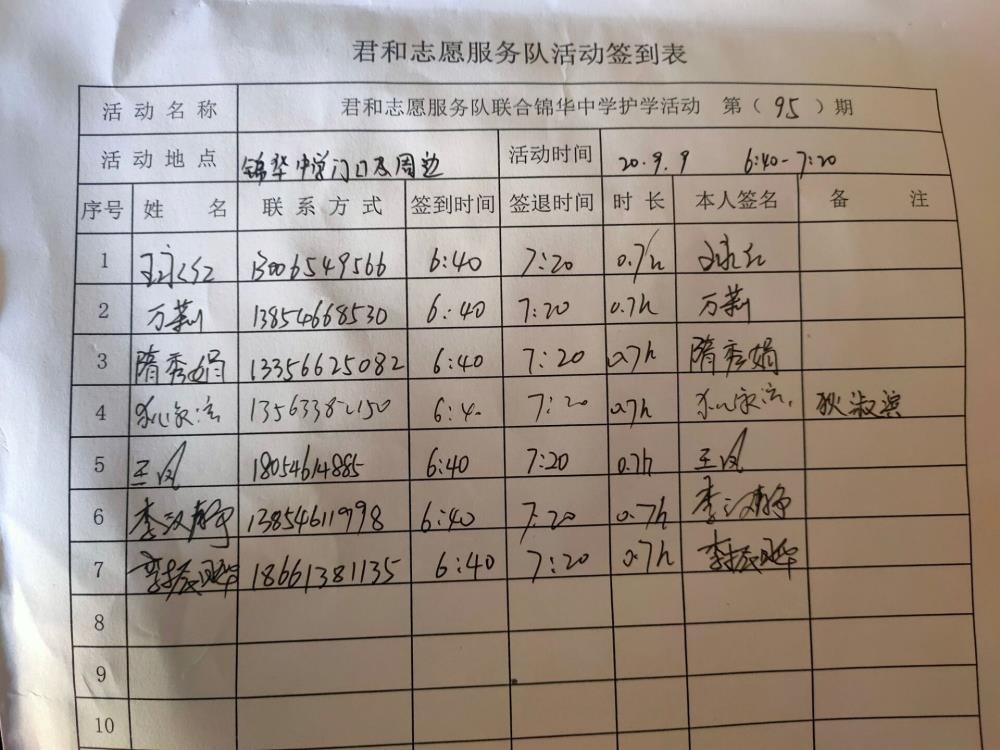 君和志愿服务队活动签到表
活动名称 君和志愿服务队联合锦华中学护学活动 第（95）期
活动地点 锦华中学门口及周边 活动时间 20.9.9 6:40-7:20
序号 姓名 联系方式 签到时间 签退时间 时长 本人签名 备注
1 王永红 13006549566 6:40 7:20 0.7h 王永红
2 万莉 13854668530 6:40 7:20 0.7h 万莉
3 隋秀娟 13356625082 6:40 7:20 0.7h 隋秀娟
4 13563382150 6:40 7:20 0.7h 狄淑滨
5 王凤 18054614885 6:40 7:20 0.7h 王凤
6 李汉静 13854611998 6:40 7:20 0.7h 李汉静
7 18661381135 6:40 7:20 0.7h
8
9
10